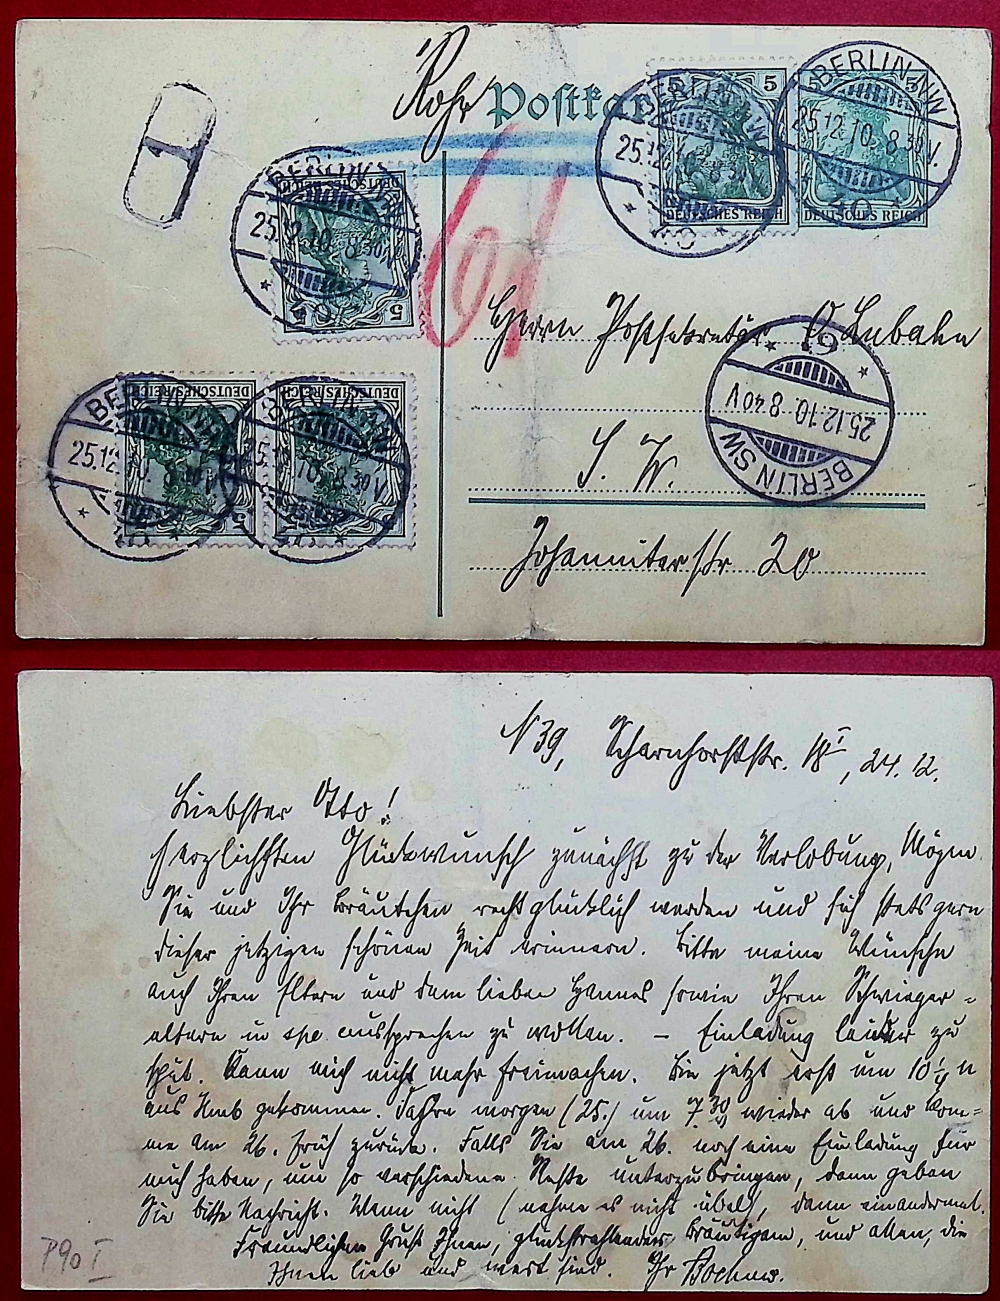 Rohr Postkarte
1
BERLIN NW
25.12.10. 8 30 V.
40
5
DEUTSCHES REICH
5
DEUTSCHES REICH
BERLIN NW
25.12.10. 8 30 V.
40
5 5
DEUTSCHES REICH
BERLIN NW
25.12.10. 8 30 V.
40
61
Herrn Postsekretär O. Lubahn
S. W.
Johanniterstr 20
BERLIN SW
25.12.10. 8 40 V
61
DEUTSCHES REICH
5
DEUTSCHES REICH
BERLIN NW
25.12.10. 8 30 V.
40
BERLIN NW
25.12.10. 8 30 V
40
N 39, Scharnhorststr. 18 I, 24. 12.
Liebster Otto!
Herzlichsten Glückwunsch zunächst zu der Verlobung, Mögen
Sie und Ihr Bräutchen recht glücklich werden und sich stets gern
dieser jetzigen schönen Zeit erinnern. Bitte meine Wünsche
auch Ihren Eltern und dem lieben Hannes sowie Ihren Schwieger-
eltern in spe aussprechen zu wollen. – Einladung leider zu
spät. Kann mich nicht mehr freimachen. Bin jetzt erst um 10 1/4 n
aus Hmb gekommen. Fahre morgen (25.) um 7 30 v wieder ab und kom-
me am 26. früh zurück. Falls Sie am 26. noch eine Einladung für
mich haben, um so verschiedene Reste unterzubringen, dann geben
Sie bitte Nachricht. Wenn nicht (nehme es nicht übel), dann einandermal.
Freundlichen Gruß Ihnen, glückstrahlender Bräutigam, und allen, die
Ihnen lieb und wert sind. Ihr
P90 I